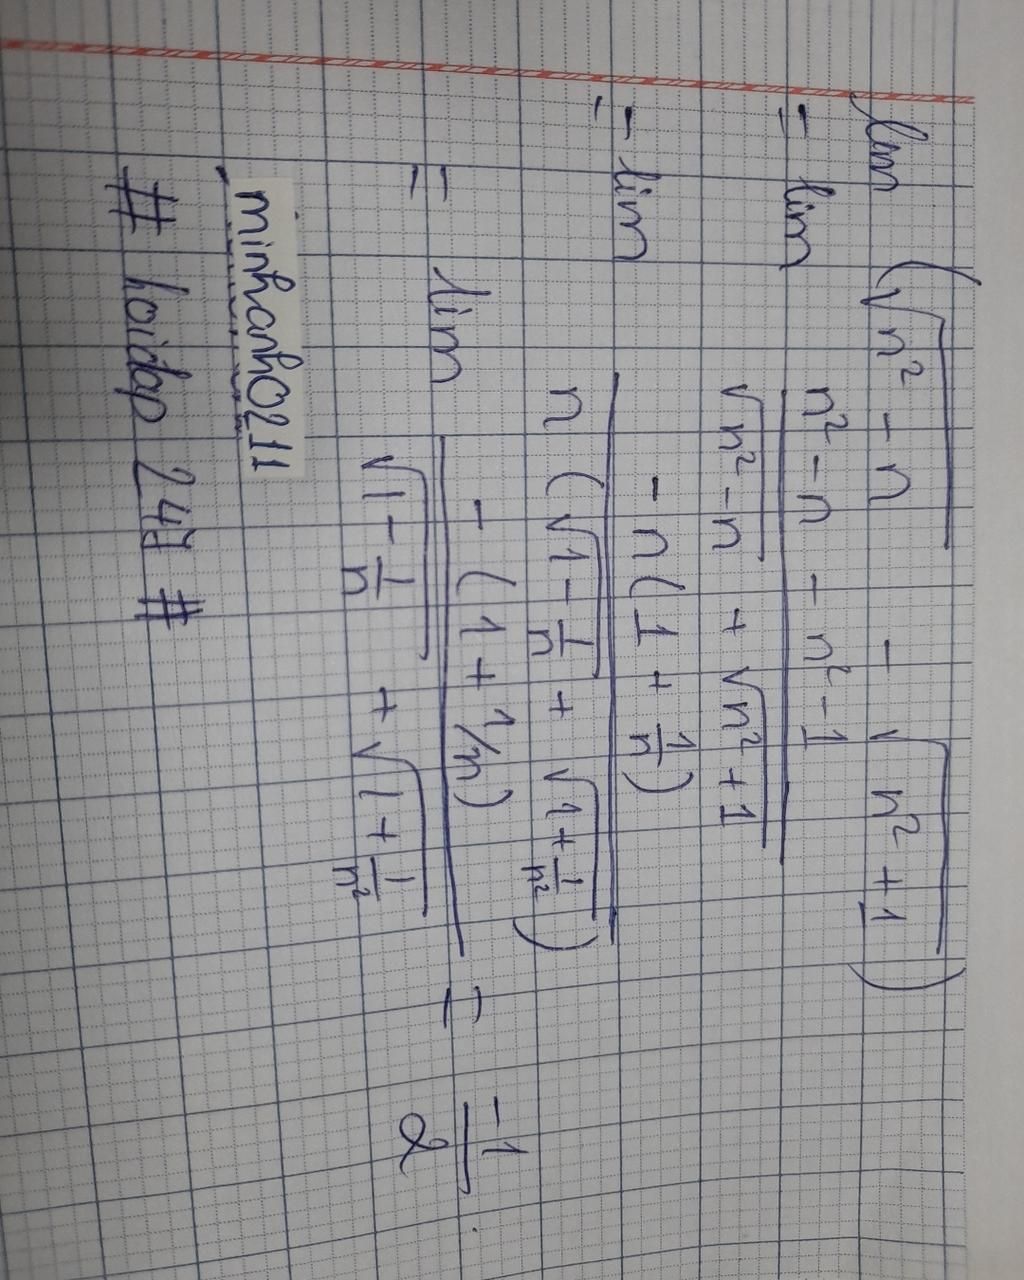 lim (√(n² - n) - √(n² + 1))
= lim (n² - n - n² - 1)/(√(n² - n) + √(n² + 1))
= lim (- n(1 + 1/n))/(n(√(1 - 1/n) + √(1 + 1/n²)))
= lim (- (1 + 1/n))/(√(1 - 1/n) + √(1 + 1/n²)) = -1/2
minhanh0211
# hoidap 247 #